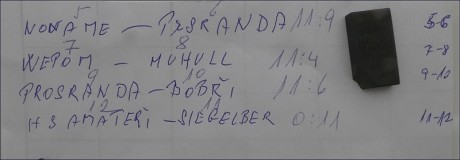 5
NONAME — PRSRANDA 11:9 5-6
7 8
WEPOM - MUHULL 11:4 7-8
9 10
PROSRANDA - DOBŘI 11:6 9-10
12 11
HS AMATEŘI - SIEGELBER 0:11 11-12